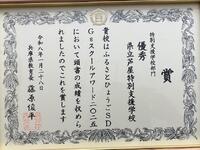 賞
特別支援学校部門
優秀
県立芦屋特別支援学校
貴校はふるさとひょうごSD
Gsスクールアワード2025
において頭書の成績を収めら
れましたのでこれを賞します
令和八年一月二十八日
兵庫県教育長 藤原俊平